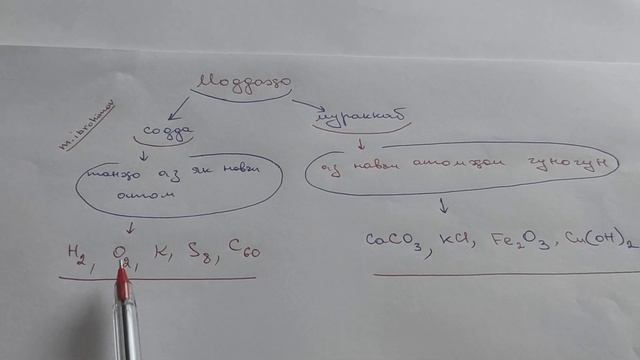 Моддаҳо
M.ibrohimov
содда
мураккаб
танҳо аз як навъи
атом
аз навъи атомҳои гуногун
H₂, O₂, K, S₈, C₆₀
CaCO₃, KCl, Fe₂O₃, Cu(OH)₂